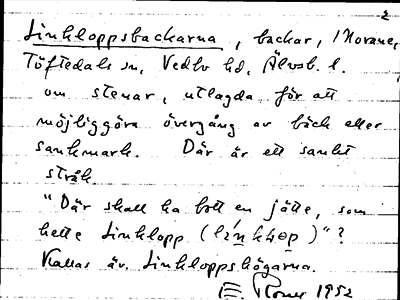 2
Linkloppsbackarna, backar, i Norane,
Töftedals sn, Vedbo hd, Älvsb. l.
om stenar, utlagda för att
möjliggöra övergång av bäck eller
sankmark. Där är ett sankt
stråk.
"Där skall ha bott en jätte, som
hette Linklopp (                )"?
Kallas äv. Linkloppshögarna.
1952